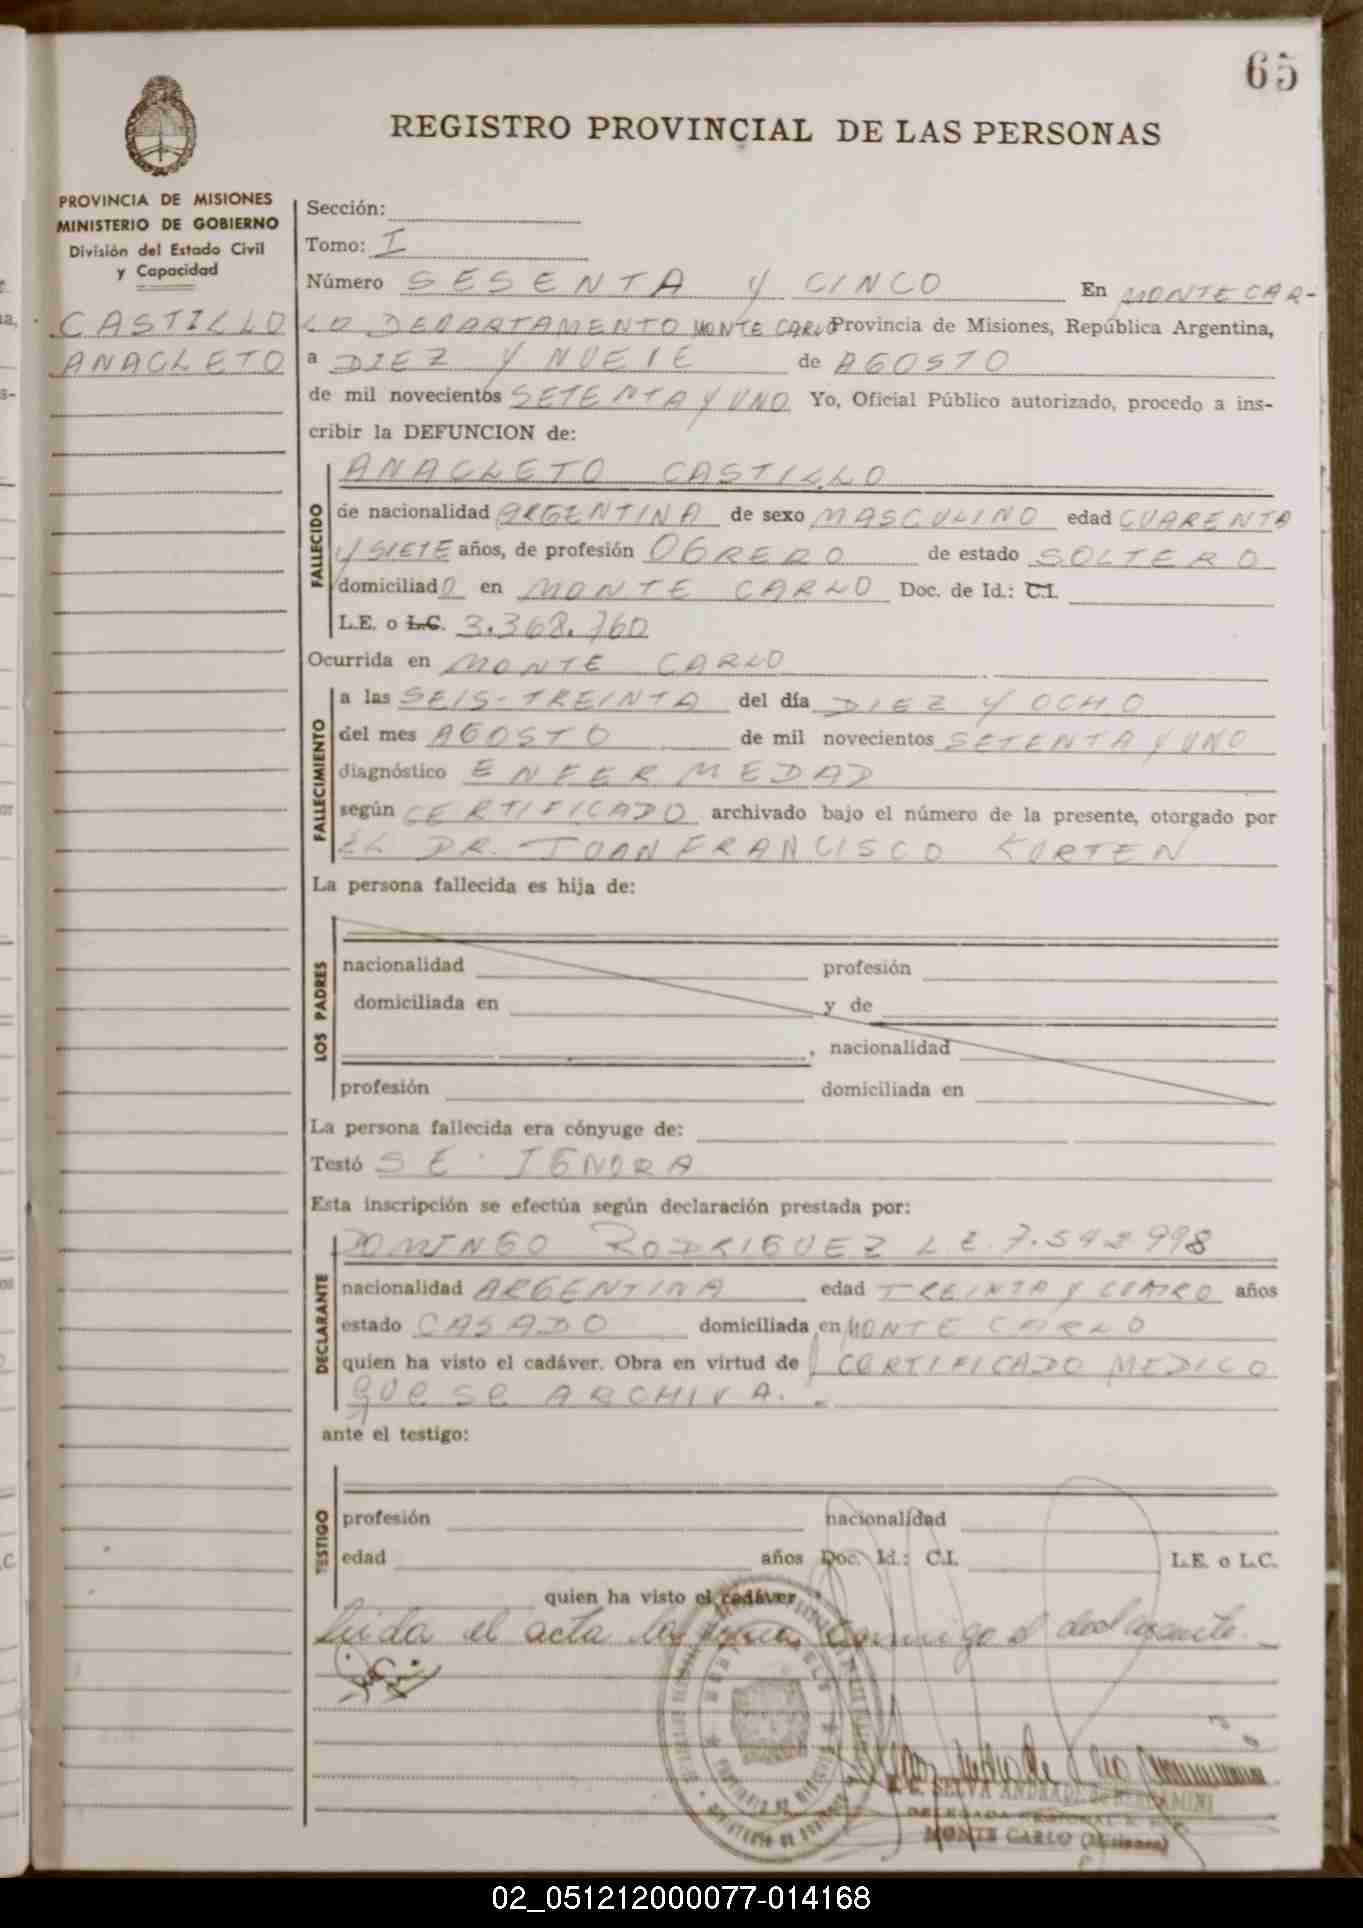 65
REGISTRO PROVINCIAL DE LAS PERSONAS
PROVINCIA DE MISIONES
MINISTERIO DE GOBIERNO
División del Estado Civil
y Capacidad
CASTILLO
ANACLETO
Sección:
Tomo: I
Número SESENTA Y CINCO En MONTE CAR-
LO DEPARTAMENTO MONTE CARLO Provincia de Misiones, República Argentina,
a DIEZ Y NUEVE de AGOSTO
de mil novecientos SETENTA Y UNO Yo, Oficial Público autorizado, procedo a ins-
cribir la DEFUNCION de:
ANACLETO CASTILLO
FALLECIDO
de nacionalidad ARGENTINA de sexo MASCULINO edad CUARENTA
Y SIETE años, de profesión OBRERO de estado SOLTERO
domiciliadO en MONTE CARLO Doc. de Id.: C.I.
L.E. o L.C. 3.368.760
Ocurrida en MONTE CARLO
FALLECIMIENTO
a las SEIS-TREINTA del día DIEZ Y OCHO
del mes AGOSTO de mil novecientos SETENTA Y UNO
diagnóstico ENFERMEDAD
según CERTIFICADO archivado bajo el número de la presente, otorgado por
EL DR. JUAN FRANCISCO KURTEN
La persona fallecida es hija de:
LOS PADRES
nacionalidad profesión
domiciliada en y de
, nacionalidad
profesión domiciliada en
La persona fallecida era cónyuge de:
Testó SE IGNORA
Esta inscripción se efectúa según declaración prestada por:
DOMINGO RODRIGUEZ L.E. 7.542998
DECLARANTE
nacionalidad ARGENTINA edad TREINTA Y CUATRO años
estado CASADO domiciliada en MONTE CARLO
quien ha visto el cadáver. Obra en virtud de CERTIFICADO MEDICO
QUE SE ARCHIVA.
ante el testigo:
TESTIGO
profesión nacionalidad
edad años Doc. Id.: C.I. L.E. o L.C.
quien ha visto el cadáver
Leida el acta la firma conmigo el declarante.
SELVA ANDRADE DE BERGAMINI
DELEGADA
MONTE CARLO (Misiones)
02_051212000077-014168